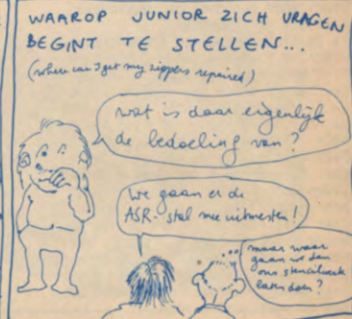 WAAROP JUNIOR ZICH VRAGEN
BEGINT TE STELLEN...
(where can I get my zippers repaired)
wat is daar eigenlijk
de bedoeling van?
we gaan er de
ASR-stal mee uitmesten!
maar waar
gaan we dan
ons stencilwerk
laten doen?